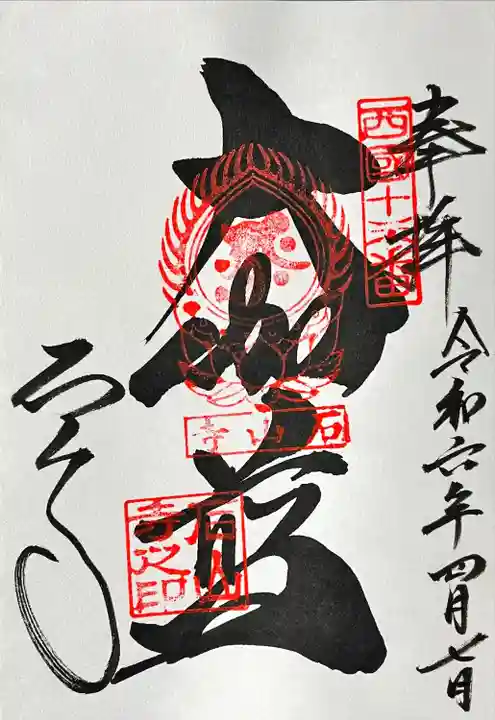 奉拝
西國十三番
令和六年四月七日
大伽藍
石山寺
石山寺之印
石山寺